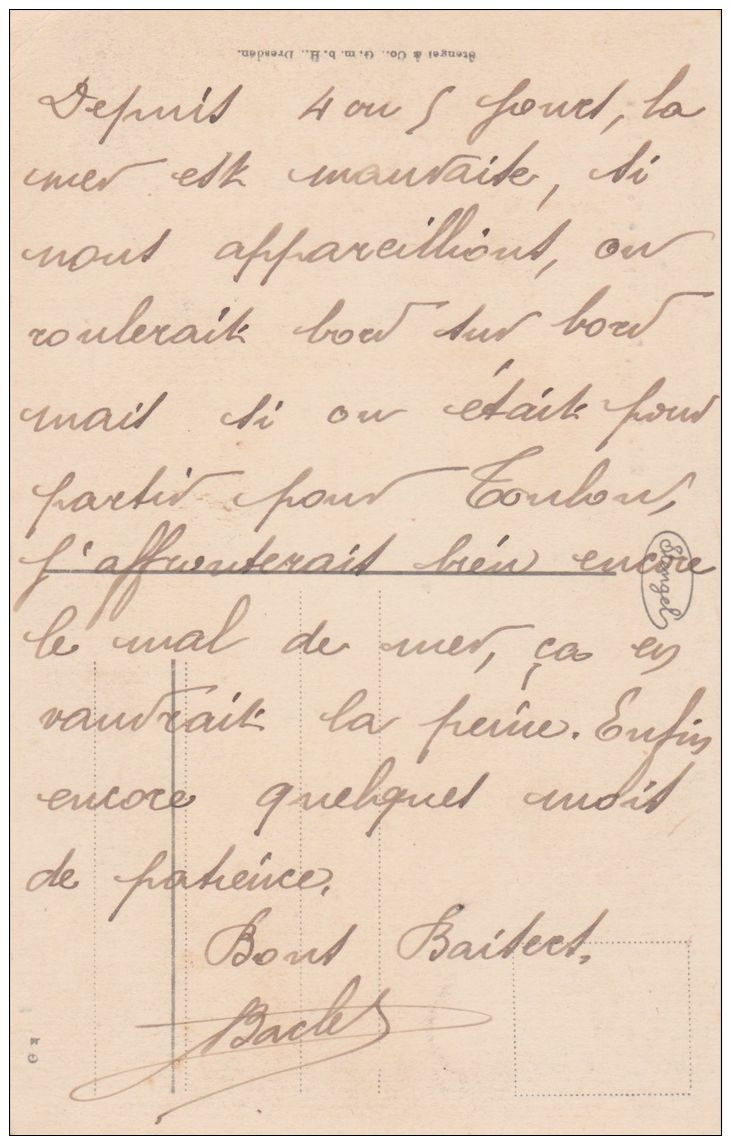 Stengel & Co., G. m. b. H., Dresden.
Depuis 4 ou 5 jours, la
mer est mauvaise, si
nous appareillions, on
roulerait bord sur bord
mais si on était pour
partir pour Toulon,
j'affronterais bien encore
Stengel
le mal de mer, ça en
vaudrait la peine. Enfin
encore quelques mois
de patience.
Bons Baisers.